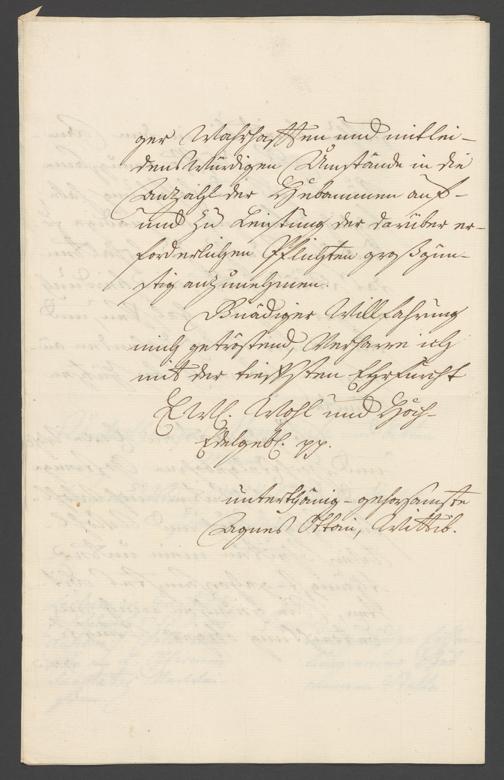 ger Wahrhafften und mitlei-
dens würdigen Umstände in die
Anzahl der Hebammen auf-
und zu Leistung der darüber er-
forderlichen Pflichten großgün-
stig anzunehmen.
Gnädiger Willfahrung
mich getröstend, verharre ich
mit der tieffsten Ehrfurcht
Ewl: Wohl und Hoch-
Edelgebl: pp.
unterthänig-gehorsamste
Agnes Ottin, Wittib.